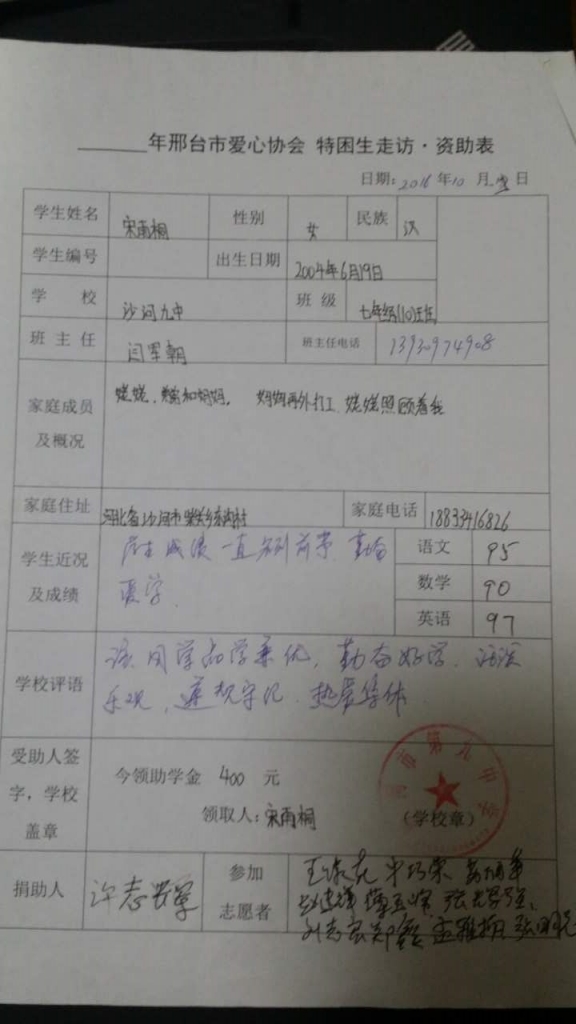 ______年邢台市爱心协会 特困生走访·资助表
日期: 2016 年 10 月 日
学生姓名 宋雨桐 性别 女 民族 汉
学生编号 出生日期 2004年6月19日
学 校 沙河九中 班 级 七年级(10)班
班 主 任 闫军朝 班主任电话 13930974908
家庭成员及概况
姥姥、 和妈妈。 妈妈再外打工 姥姥照顾着我
家庭住址 河北省沙河市 村 家庭电话 18833416826
学生近况及成绩
成绩一直名列前茅 勤奋
爱学.
语文 95
数学 90
英语 97
学校评语
该同学品学兼优, 勤奋好学. 活泼
乐观, 遵规守纪. 热爱集体
受助人签字,学校盖章
今领助学金 400 元
领取人: 宋雨桐
(学校章)
市第九中学
捐助人 许志 军
参加志愿者